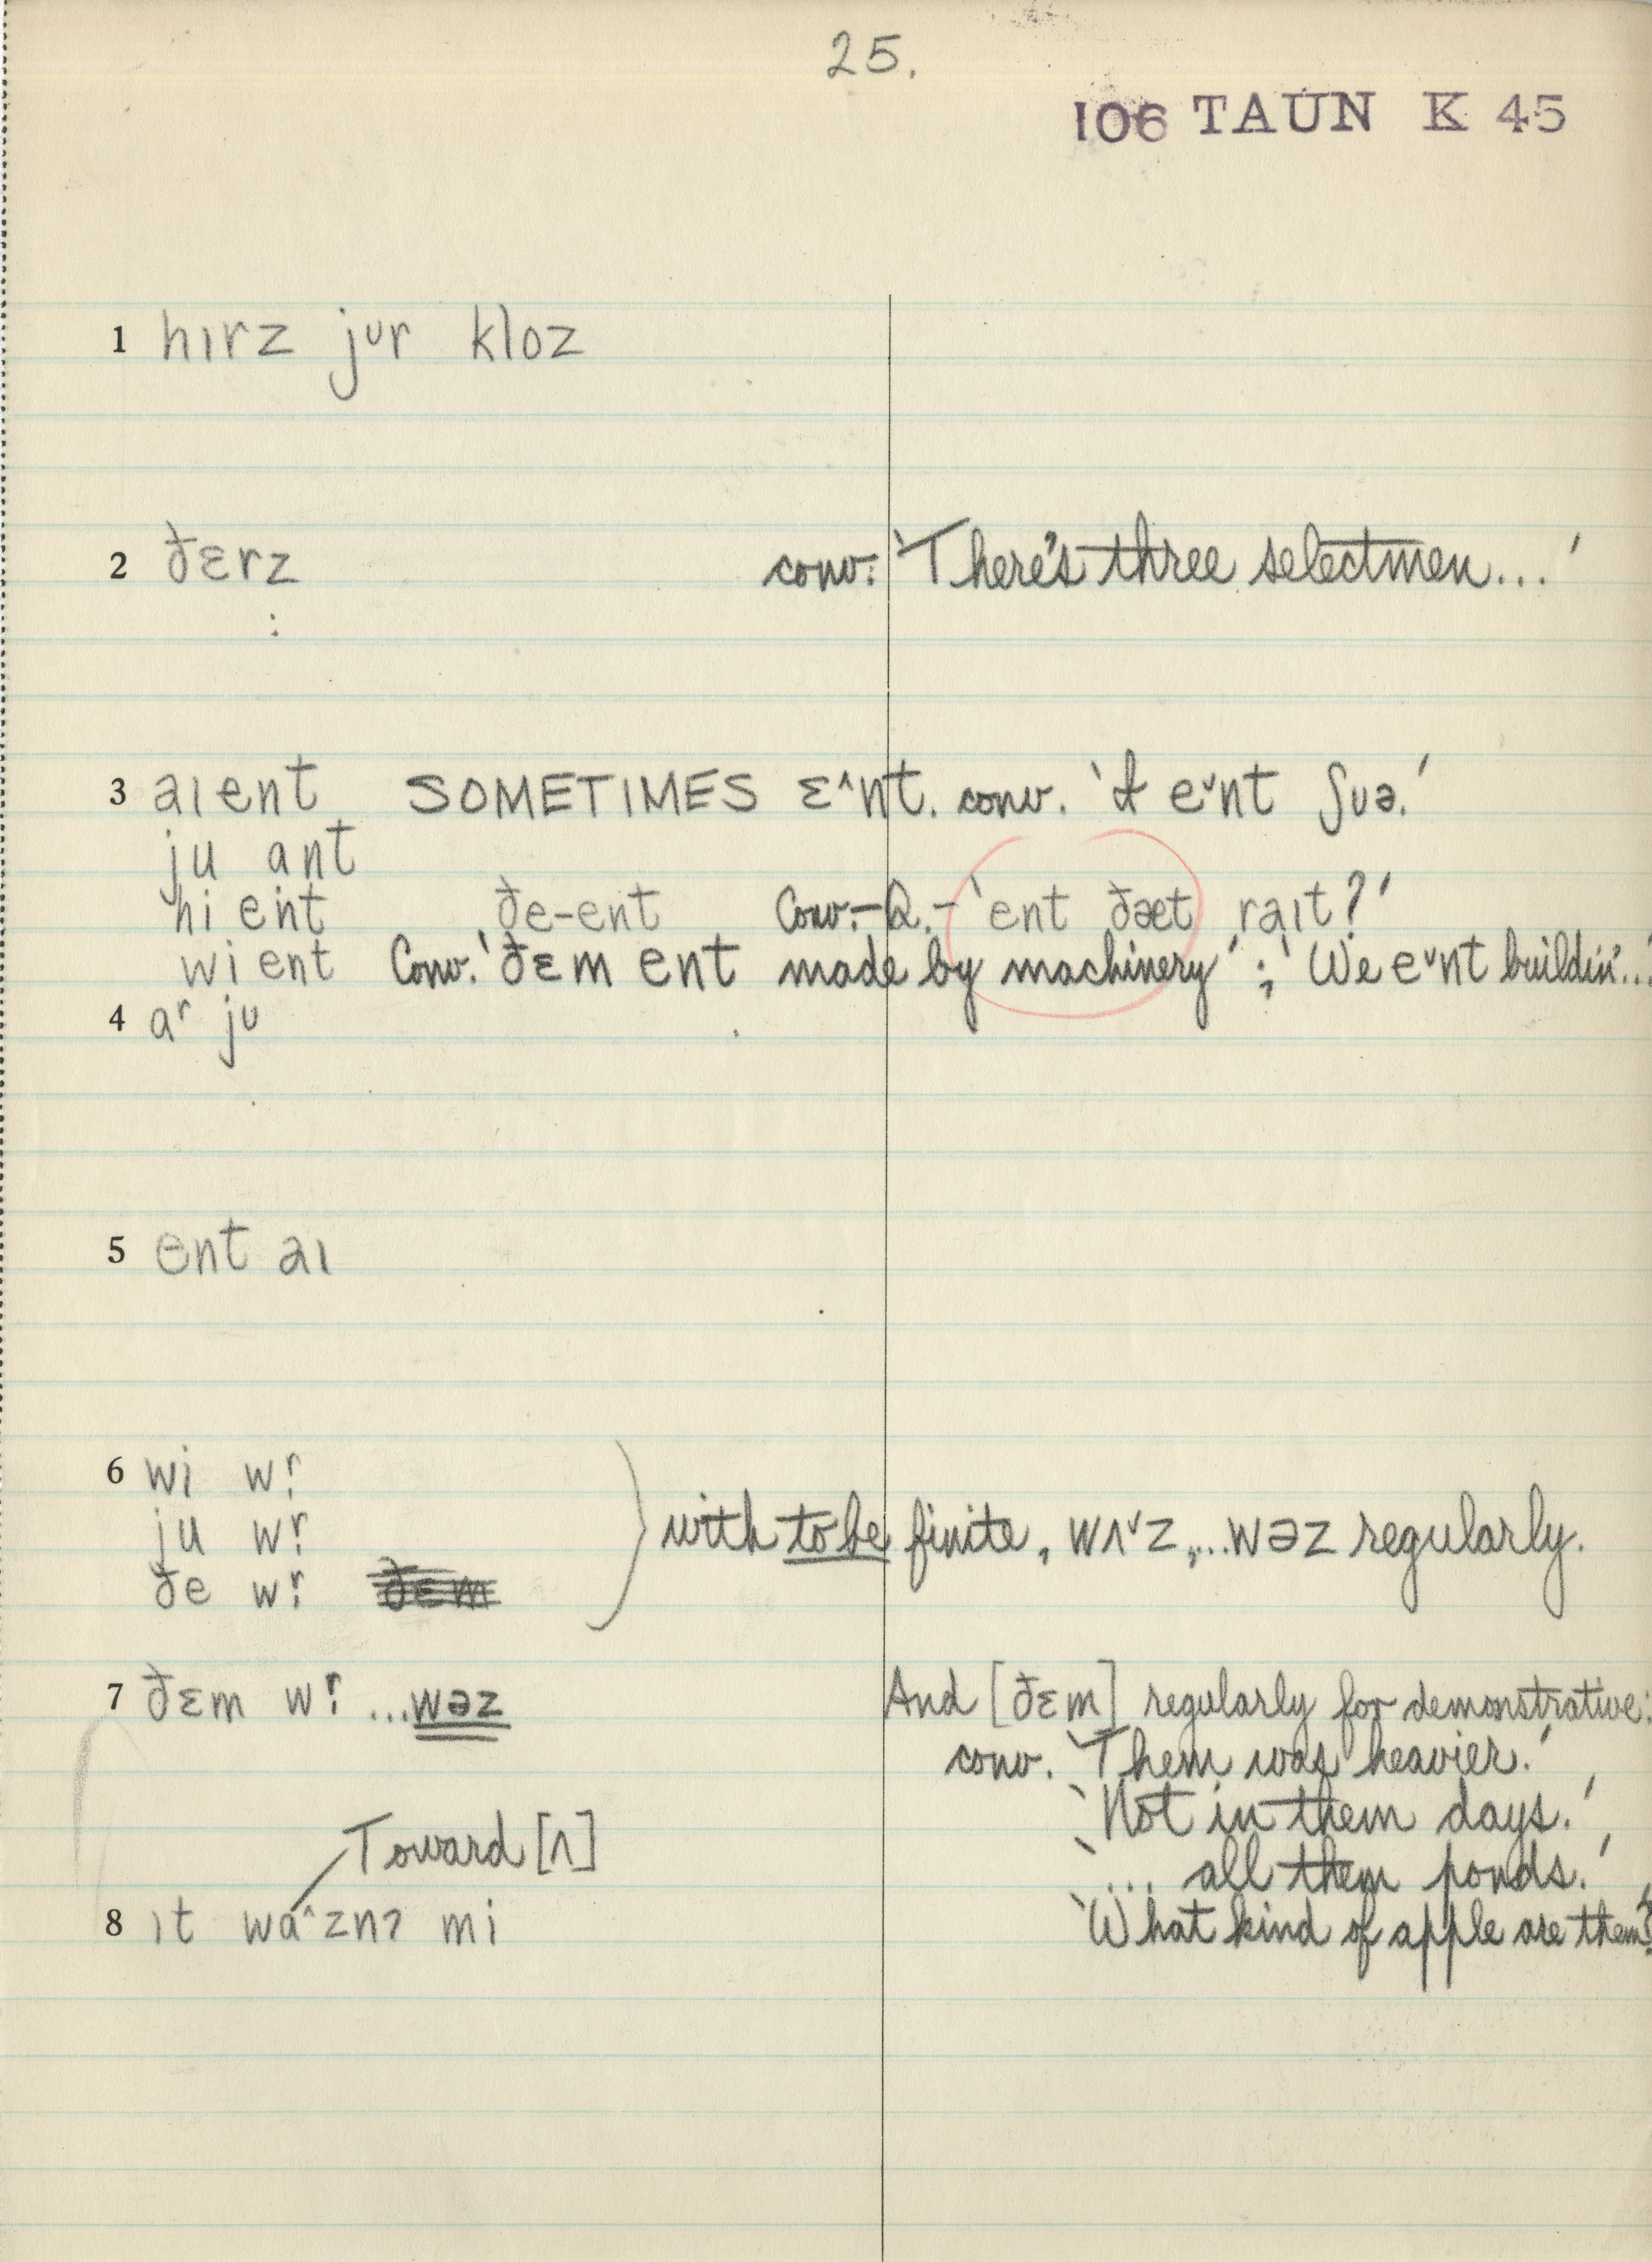 25.
106 TAUN K 45
1 hɪrz jʊr kloz
2 ðɛrz conv. 'There's three selectmen...'
3 aɪ ent SOMETIMES ɛ^nt. conv. 'I e˅nt ʃʊə.'
ju ant
hi ent ðe-ent Conv.-Q.- 'ent ðæt raɪt?'
wi ent Conv. 'ðɛm ent made by machinery'; 'We e˅nt buildin'...'
4 ar jʊ
5 ent aɪ
6 wi wr̩
ju wr̩
ðe wr̩
with to be finite, wʌ˅z,...wəz regularly.
7 ðɛm wr̩ ...wəz And [ðɛm] regularly for demonstrative:
conv. 'Them was heavier.'
'Not in them days.'
Toward [ʌ] '... all them ponds.'
8 ɪt wa^znʔ mi 'What kind of apple are them?